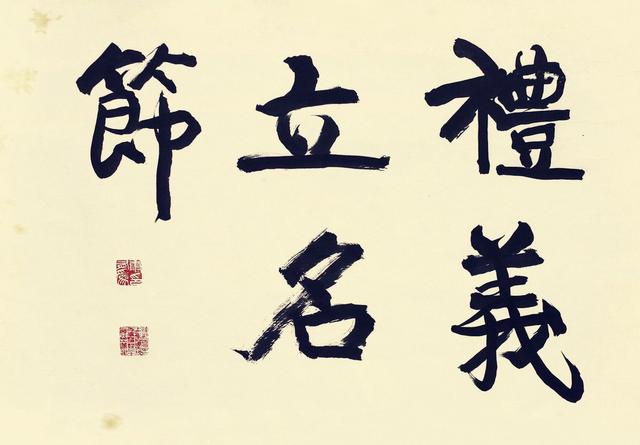 禮義
立名
節